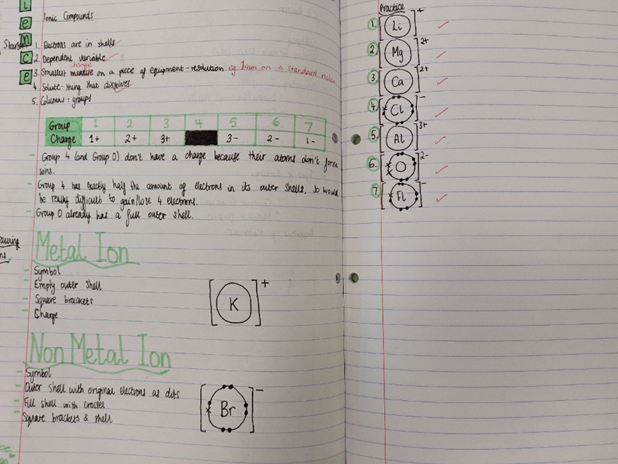 i
e
n
c
e
Ionic Compounds
1. Electrons are in shells
2. Dependent variable
3. Smallest on a piece of equipment - resolution eg. 1mm on a standard
4. Solute - thing that dissolves
5. Columns = groups
Group 1 2 3 4 5 6 7
Charge 1+ 2+ 3+ 3- 2- 1-
- Group 4 (and Group 0) don't have a charge because their atoms don't form
ions.
- Group 4 has exactly half the amount of electrons in its outer shells, so would
be really difficult to gain/lose 4 electrons.
- Group 0 already has a full outer shell.
Metal Ion
- Symbol
- Empty outer shell
- Square brackets
- Charge
[K]+
Non Metal Ion
- Symbol
- Outer shell with original electrons as dots
- Fill shell with crosses
- Square brackets & shell
[Br]-
Practice
1. [Li]+
2. [Mg]2+
3. [Ca]2+
4. [Cl]-
5. [Al]3+
6. [O]2-
7. [Fl]-